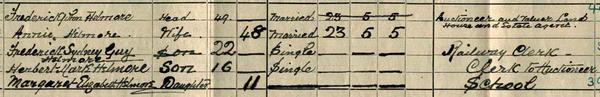 Frederick John Hilmore Head 49 Married 23 5 5 Auctioneer and Valuer Land House and Estate Agent.
Annie Hilmore. Wife 48 Married 23 5 5
Frederick Sydney Guy Hilmore Son 22 Single Railway Clerk
Herbert Mark Hilmore Son 16 Single Clerk to Auctioneer
Margaret Elizabeth Hilmore Daughter 11 School